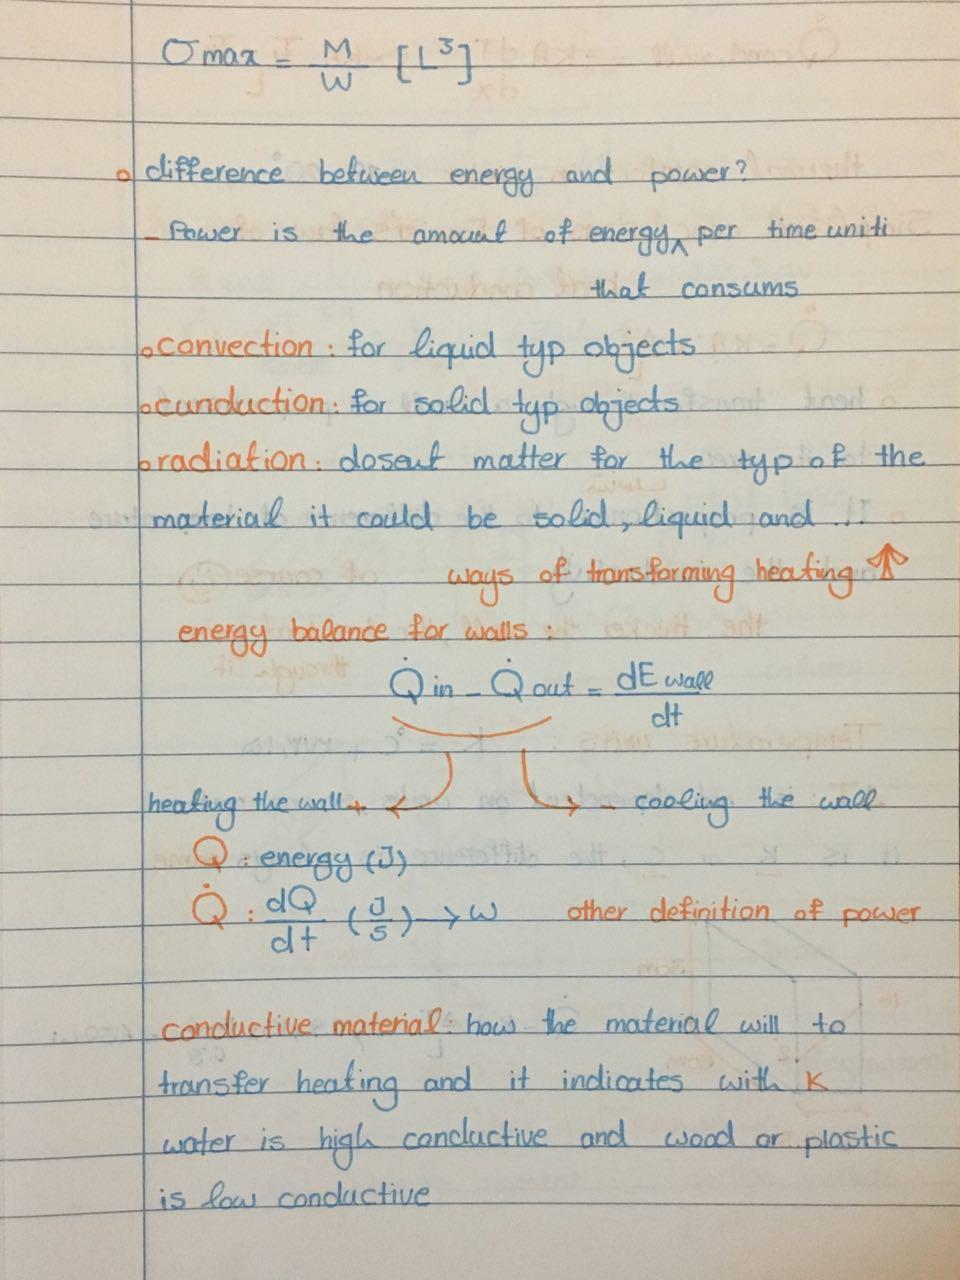 σmax = M/W [L³]
difference between energy and power?
- Power is the amount of energy ^ per time uniti
that consums
convection: for liquid typ objects
cunduction: for solid typ objects
radiation: dosent matter for the typ of the
material it could be solid, liquid and ...
ways of transforming heating ↑
energy balance for walls:
Q̇in - Q̇out = dEwall/dt
heating the wall + ← → - cooling the wall
Q: energy (J)
Q̇: dQ/dt (J/s) → w other definition of power
conductive material: how the material will to
transfer heating and it indicates with K
water is high conductive and wood or plastic
is low conductive